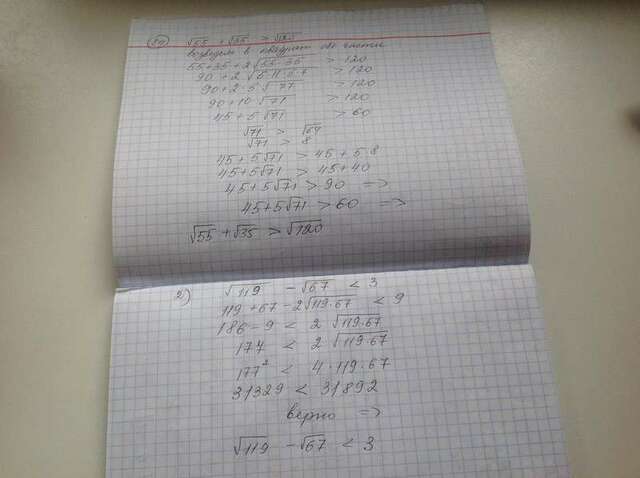 √55 + √35 > √120
возведем в квадрат обе части
55+35+2√55·35 > 120
90 + 2√5·11·5·7 > 120
90+2·5√77 > 120
90+10·√71 > 120
45+5√71 > 60
√71 > √64
√71 > 8
45+5√71 > 45+5·8
45+5√71 > 45+40
45+5√71 > 90 =>
45+5√71 > 60 =>
√55 + √35 > √120
2) √119 - √67 < 3
119+67-2√119·67 < 9
186-9 < 2√119·67
177 < 2√119·67
177² < 4·119·67
31329 < 31892
верно =>
√119 - √67 < 3